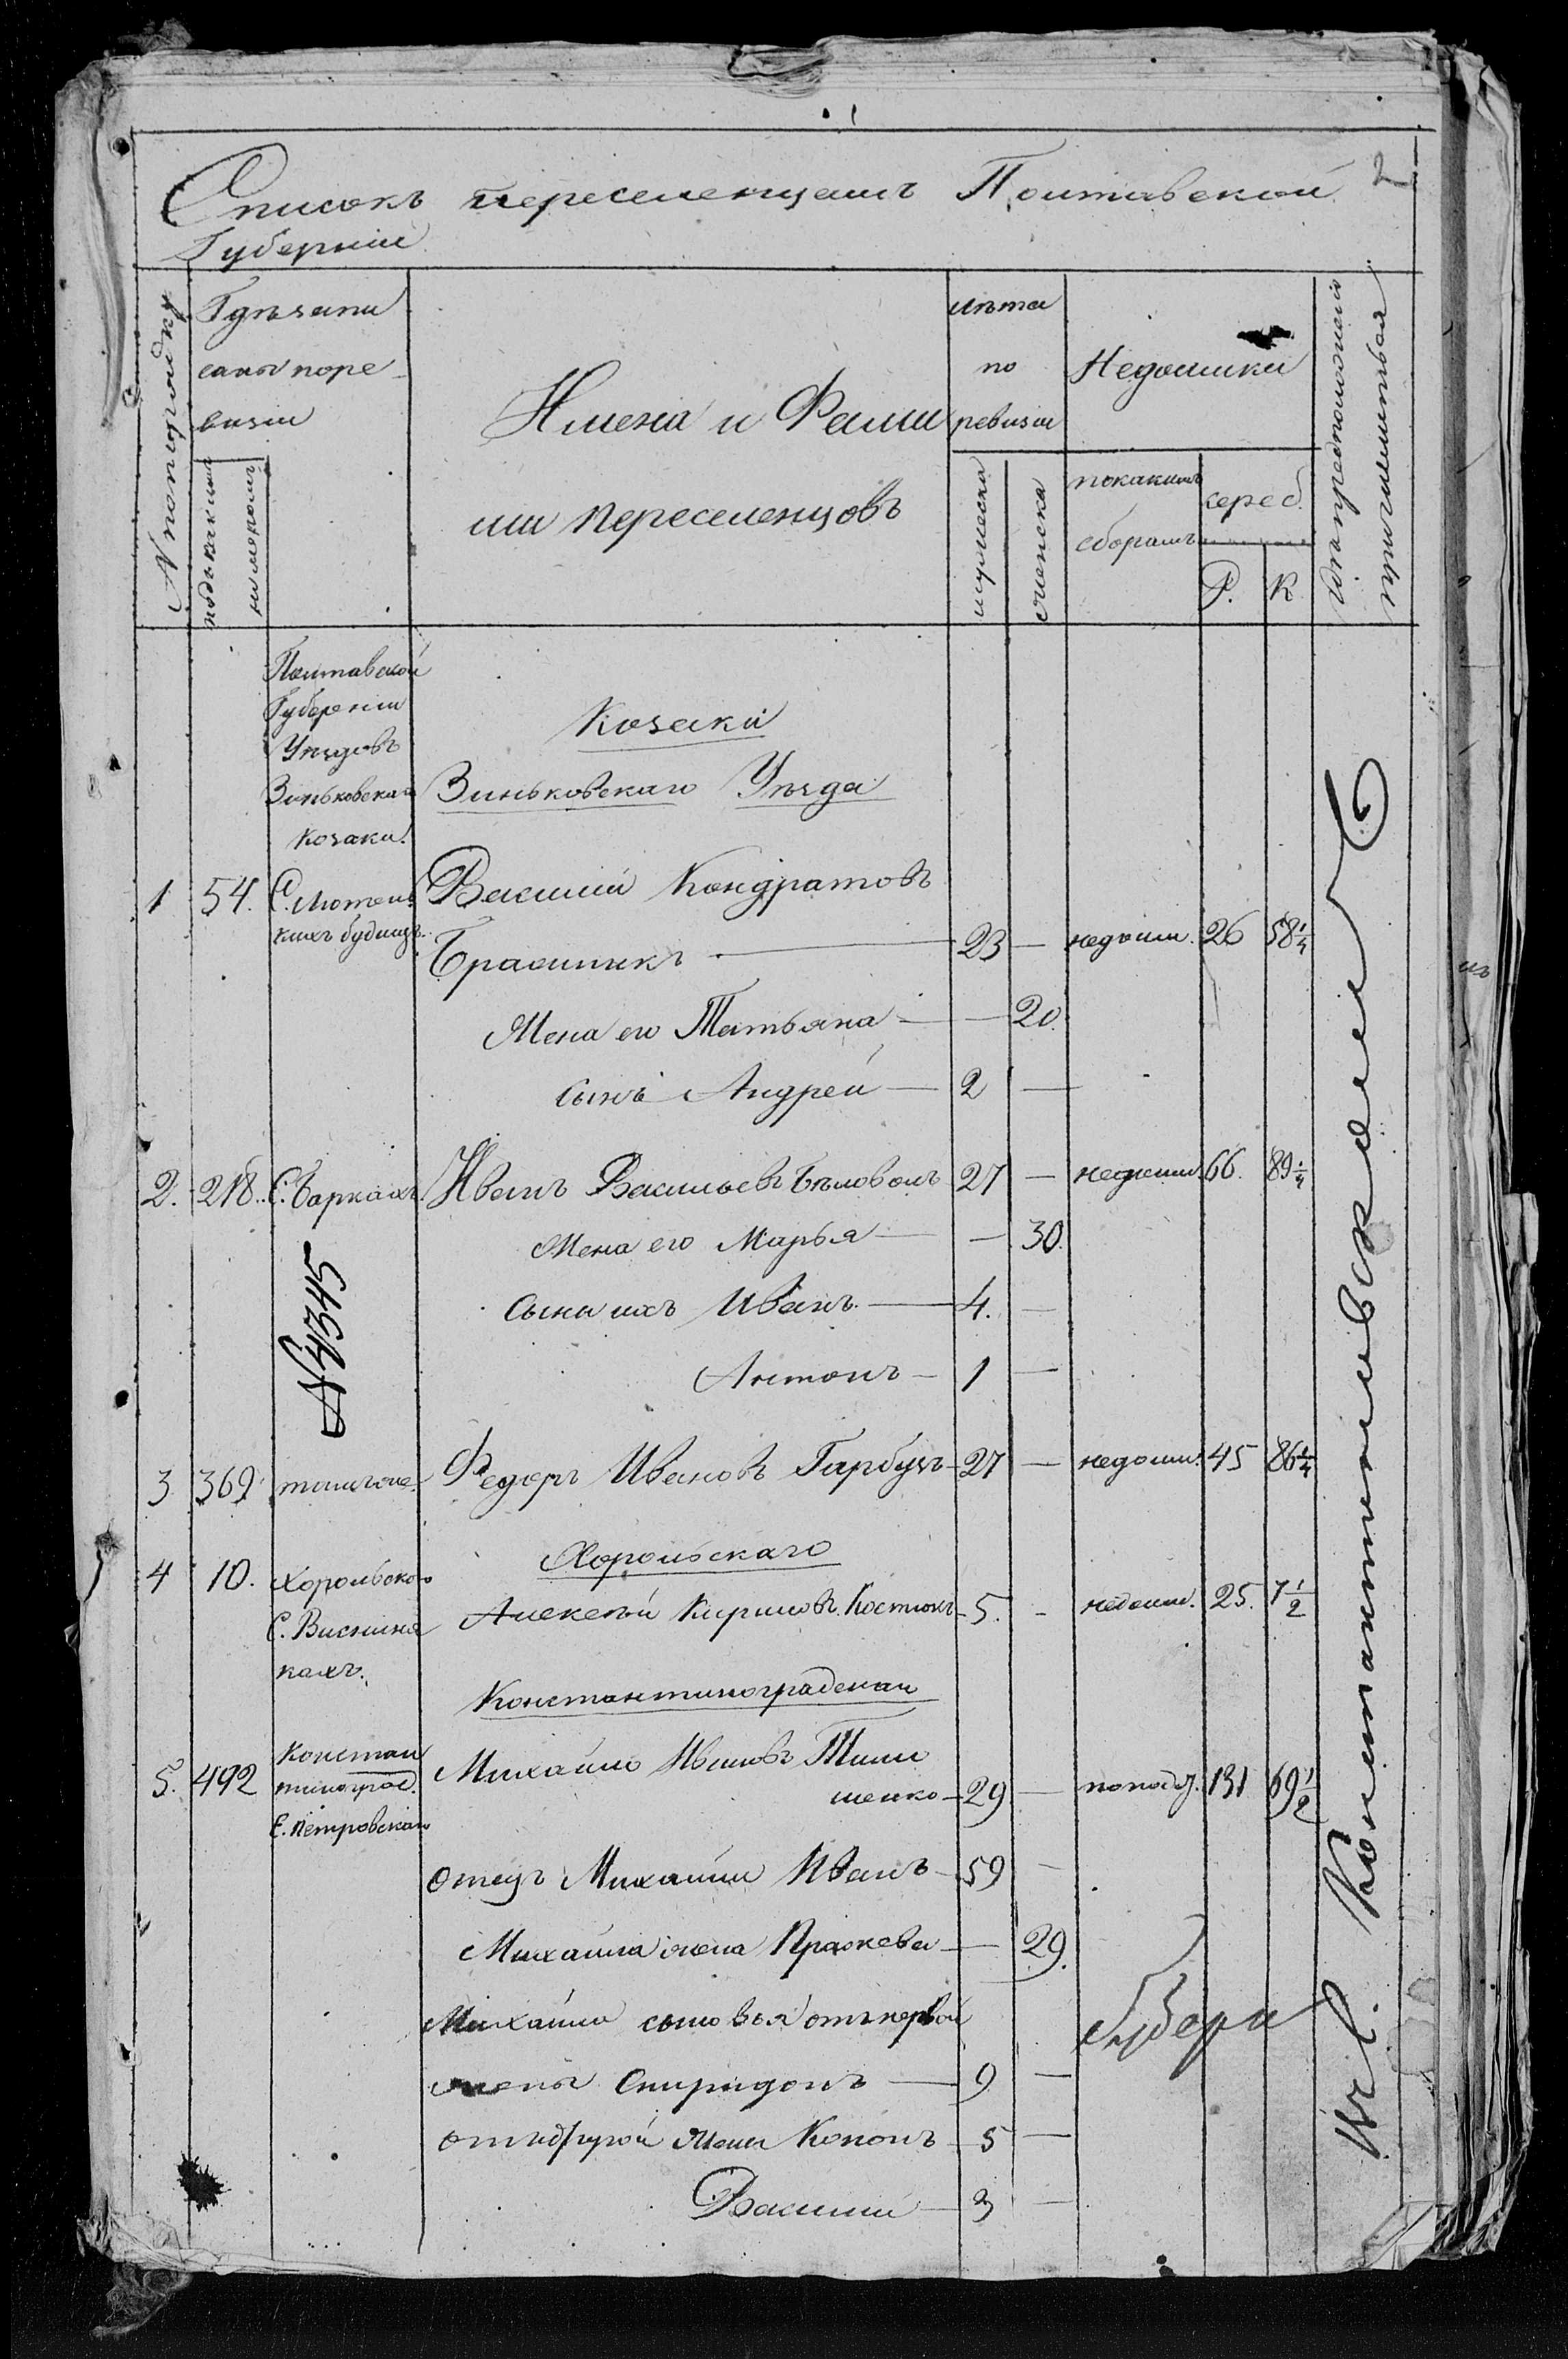 2
Списокъ переселенцамъ Полтавской
Губерніи
№ по порядку
Гдѣ запи
саны по ре
визіи
подъ какимъ
нумеромъ
Имена и Фами
ліи переселенцовъ
лѣта
по
ревизіи
мужеска
женска
Недоимки
по какимъ
сборамъ
сереб.
Р. К
Полтавской
Губерніи
Уѣздовъ
Зиньковскаго
козаки.
Козаки
Зиньковскаго Уѣзда
1 54. С. Лютен
кихъ будищъ. Василій Кондратовъ
23 — недоим. 26 58¼
Жена его Татьяна — — 20.
Сынъ Андрей — 2 —
2. 218. С. Баркахъ. Иванъ Васильевъ Бѣловолъ 27 — недоим. 66. 89¼
Жена его Марья — — 30.
Сыны ихъ Иванъ — 4. —
№ 4345
Антонъ — 1 —
3 369 тамъ же Федоръ Ивановъ Гарбузъ 27 — недоим. 45 86¼
Хорольскаго
4 10. Хорольского
С. Вишня
кахъ. Алексѣй Кириловъ Костюкъ 5. - недоим. 25. 7½
Константиноградскаго
5. 492 Констан
тиноград.
С. Петровскаго Михайло Ивановъ Тими
шенко — 29 — по под. 131 69½
отецъ Михайлы Иванъ 59 —
Михайла жена Прасковья — — 29.
Михайла сыновья отъ первой
жены Спиридонъ — 9 —
отъ другой жены Кононъ 5 —
Василій — 3 —
Губерн